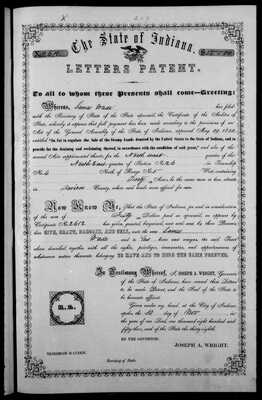 The State of Indiana.
LETTERS PATENT.
To all to whom these Presents shall come—Greeting:
Whereas, James Wade has filed
with the Secretary of the State aforesaid, the Certificate of the Auditor of
State, whereby it appears that full payment has been made according to the provisions of an
Act of the General Assembly of the State of Indiana, approved May
entitled "An Act to regulate the Sale of the Swamp Lands donated by the United States to the State of Indiana, and to
provide for the draining and reclaiming thereof, in accordance with the condition of said grant," and also of the
several Acts supplemental thereto for the North west quarter of the
North East quarter of Section No. in Township
No. of Range No. containing
Forty Acres, be the same more or less, situate
in County, when said lands were offered for sale.
Now Know Ye, That the State of Indiana, for and in consideration
of the sum of Fifty Dollars paid as aforesaid, as appears by
Certificate No. has given, granted, bargained and sold, and by these Presents,
does GIVE, GRANT, BARGAIN, AND SELL, unto the said James
Wade and to his heirs and assigns, the said Tract
above described, together with all the rights, privileges, immunities, and appurtenances of
whatsoever nature thereunto belonging, TO HAVE AND TO HOLD THE SAME FOREVER.
In Testimony Whereof, I, JOSEPH A. WRIGHT, Governor
of the State of Indiana, have caused these Letters
to be made Patent, and the Seal of the State to
be hereunto affixed.
Given under my hand, at the City of Indianapolis,
upon the day of Nov. in
the year of our Lord, one thousand eight hundred and
fifty-three, and of the State the thirty-eighth.
BY THE GOVERNOR.
JOSEPH A. WRIGHT.
Secretary of State.